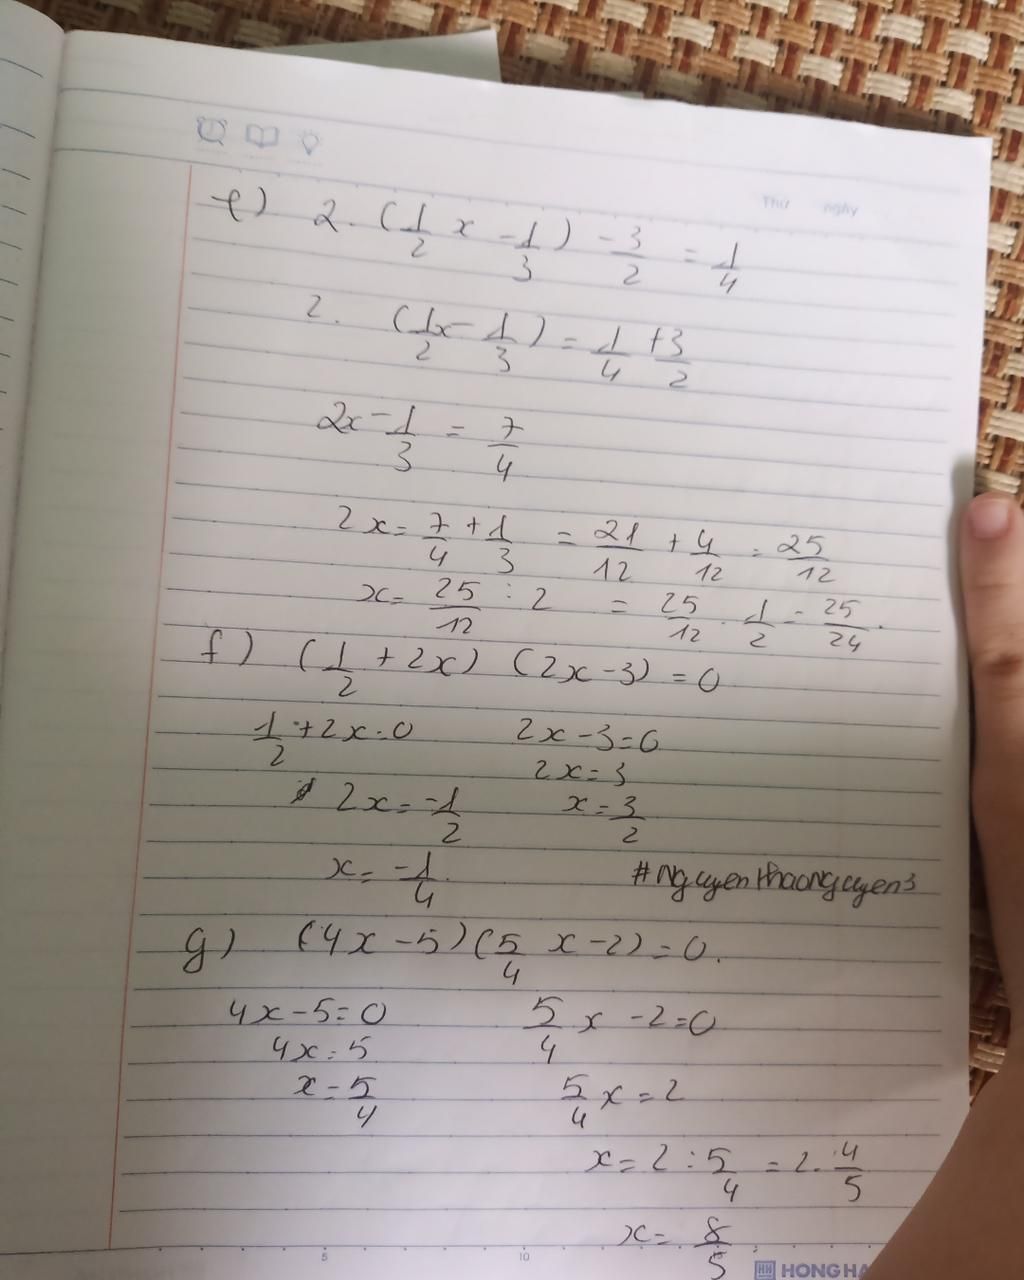 Thứ ngày
e) 2. (1/2 x - 1/3) - 3/2 = 1/4
2. (1/2 x - 1/3) = 1/4 + 3/2
2x - 1/3 = 7/4
2x = 7/4 + 1/3 = 21/12 + 4/12 = 25/12
x = 25/12 : 2 = 25/12 . 1/2 = 25/24.
f) (1/2 + 2x) (2x - 3) = 0
1/2 + 2x = 0 2x - 3 = 0
2x = 3
2x = -1/2 x = 3/2
x = -1/4.
#Nguyenthaonguyen3
g) (4x - 5) (5/4 x - 2) = 0.
4x - 5 = 0 5/4 x - 2 = 0
4x = 5
x = 5/4 5/4 x = 2
x = 2 : 5/4 = 2. 4/5
x = 8/5
5 10 HH HONG HA